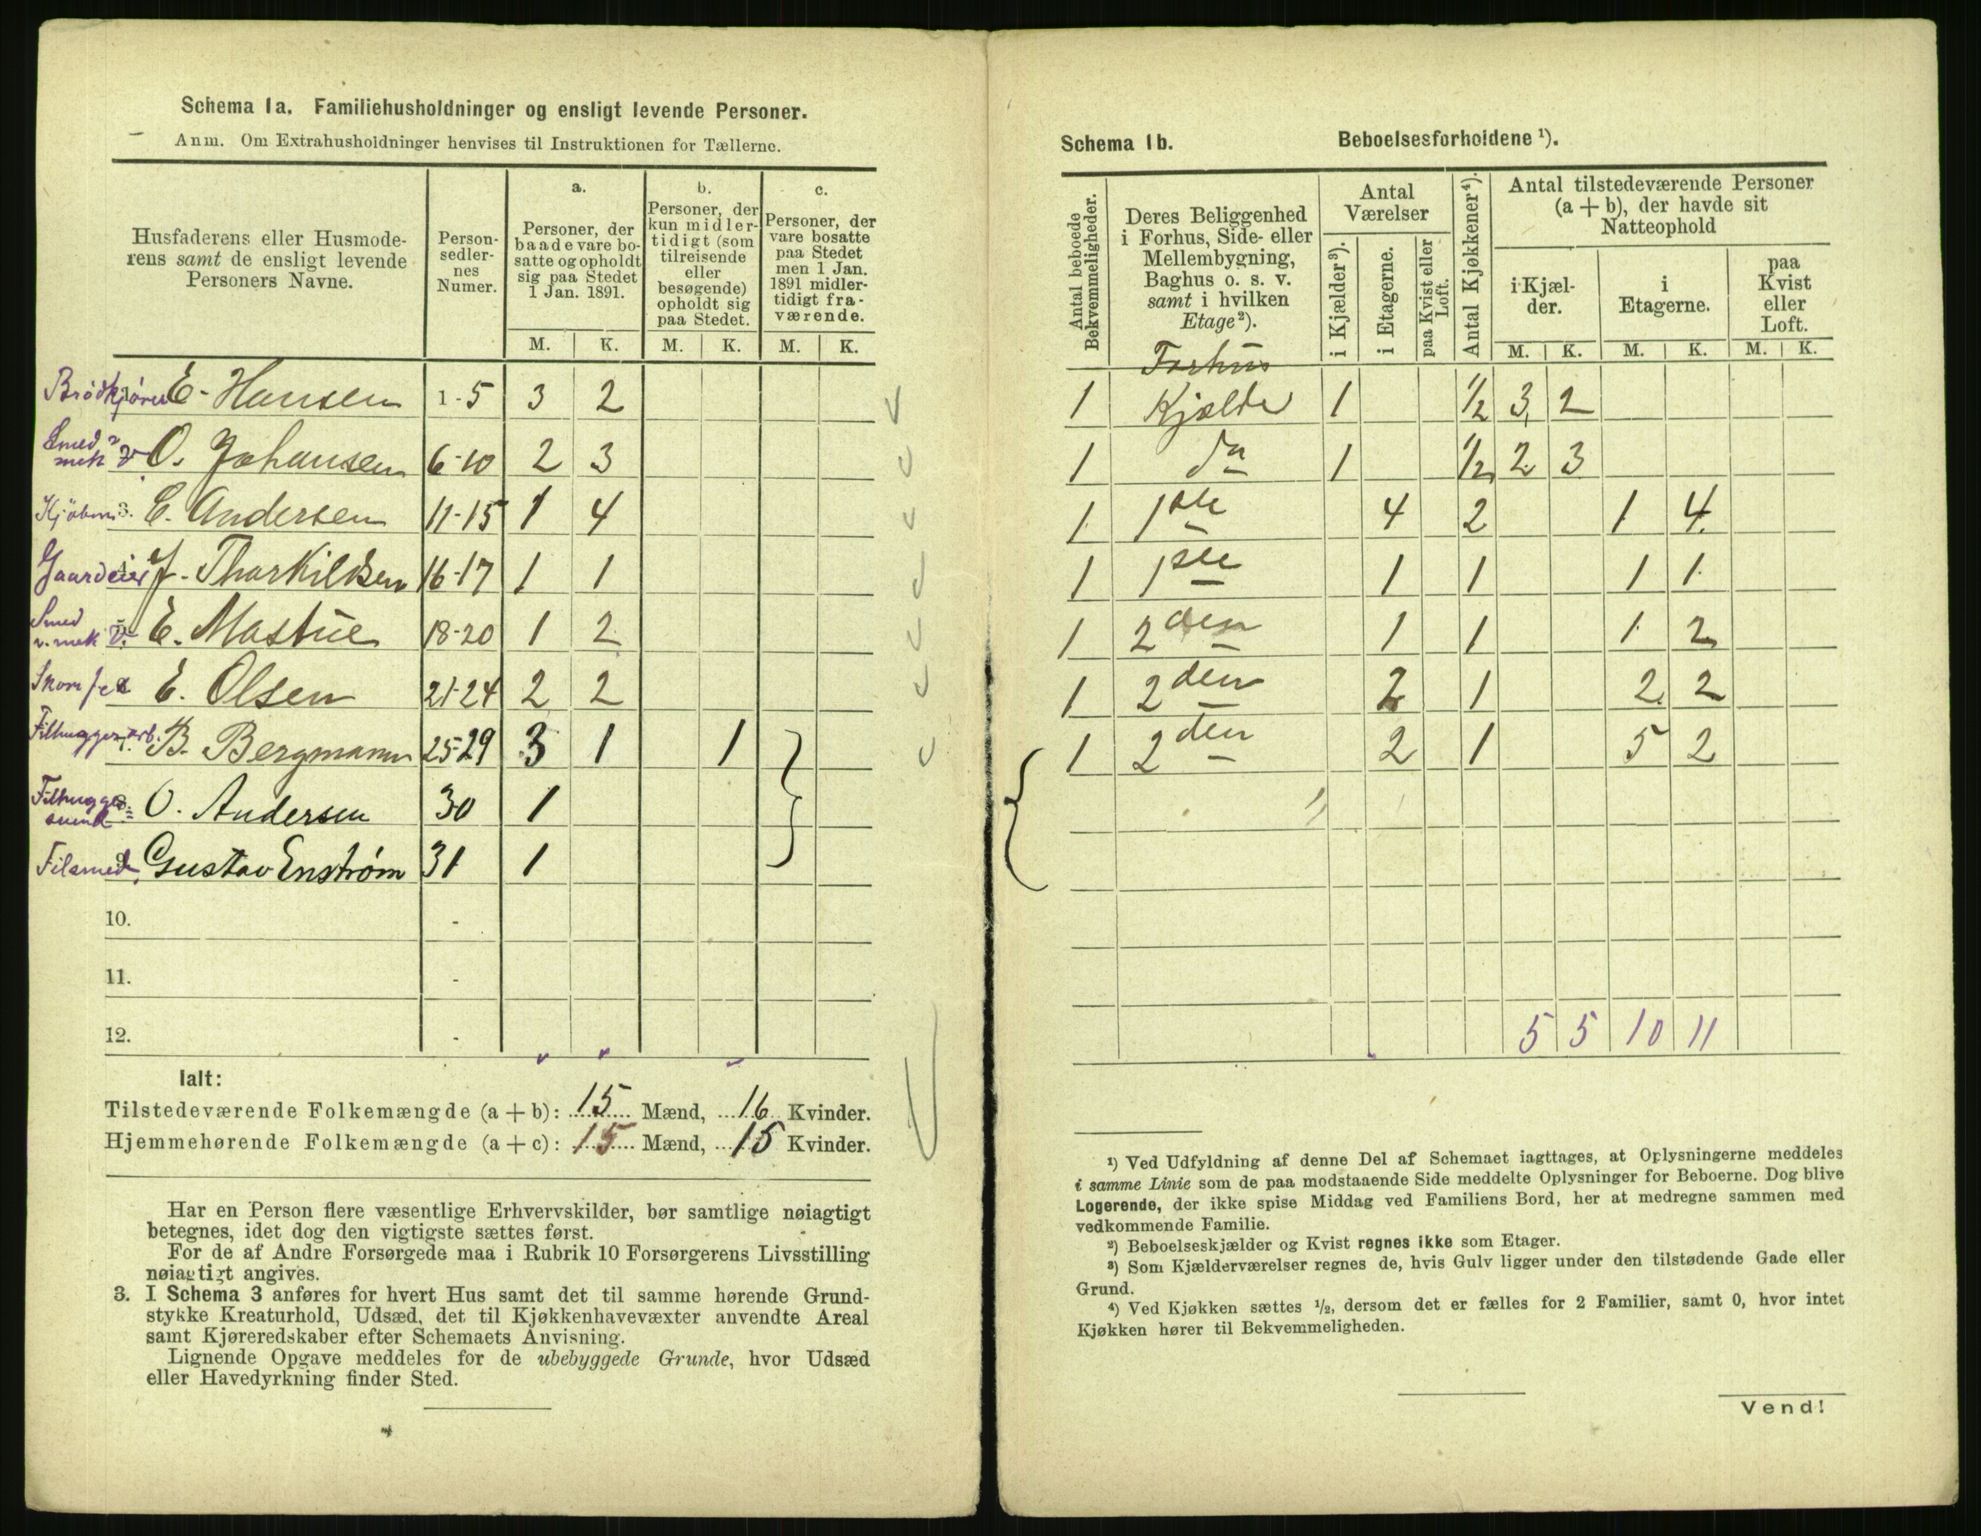 Schema 1a. Familiehusholdninger og ensligt levende Personer.
Anm. Om Extrahusholdninger henvises til Instruktionen for Tællerne.
Husfaderens eller Husmoderens samt de ensligt levende Personers Navne.
Personsedlernes Numer.
a.
Personer, der baade vare bosatte og opholdt sig paa Stedet 1 Jan. 1891.
b.
Personer, der kun midlertidigt (som tilreisende eller besøgende) opholdt sig paa Stedet.
c.
Personer, der vare bosatte paa Stedet men 1 Jan. 1891 midlertidigt fraværende.
M. K. M. K. M. K.
Brødkjører E. Hansen 1-5 3 2
Smed mek V. O. Johansen 6-10 2 3
Kjøbm 3. C. Andersen 11-15 1 4
Gaardeier J. Tharkildsen 16-17 1 1
Smed v. mek V. E. Mastue 18-20 1 2
E. Olsen 21-24 2 2
Filhugger arb. B. Bergmann 25-29 3 1 1
Filhugger svend O. Andersen 30 1
Filsmed Gustav Enstrøm 31 1
10. -
11. -
12. -
Ialt:
Tilstedeværende Folkemængde (a + b): 15 Mænd, 16 Kvinder.
Hjemmehørende Folkemængde (a + c): 15 Mænd, 15 Kvinder.
Har en Person flere væsentlige Erhvervskilder, bør samtlige nøiagtigt
betegnes, idet dog den vigtigste sættes først.
For de af Andre Forsørgede maa i Rubrik 10 Forsørgerens Livsstilling
nøiagtigt angives.
3. I Schema 3 anføres for hvert Hus samt det til samme hørende Grund-
stykke Kreaturhold, Udsæd, det til Kjøkkenhavevæxter anvendte Areal
samt Kjøreredskaber efter Schemaets Anvisning.
Lignende Opgave meddeles for de ubebyggede Grunde, hvor Udsæd
eller Havedyrkning finder Sted.
Schema 1b. Beboelsesforholdene ¹).
Antal beboede Bekvemmeligheder.
Deres Beliggenhed i Forhus, Side- eller Mellembygning, Baghus o. s. v. samt i hvilken Etage²).
Antal Værelser
i Kjælder³).
i Etagerne.
paa Kvist eller Loft.
Antal Kjøkkener⁴).
Antal tilstedeværende Personer (a + b), der havde sit Natteophold
i Kjælder.
i Etagerne.
paa Kvist eller Loft.
M. K. M. K. M. K.
Forhus
1 Kjælder 1 ½ 3 2
1 do 1 ½ 2 3
1 1ste 4 2 1 4
1 1ste 1 1 1 1
1 2den 1 1 1 2
1 2den 2 1 2 2
1 2den 2 1 5 2
5 5 10 11
¹) Ved Udfyldning af denne Del af Schemaet iagttages, at Oplysningerne meddeles
i samme Linie som de paa modstaaende Side meddelte Oplysninger for Beboerne. Dog blive
Logerende, der ikke spise Middag ved Familiens Bord, her at medregne sammen med
vedkommende Familie.
²) Beboelseskjælder og Kvist regnes ikke som Etager.
³) Som Kjælderværelser regnes de, hvis Gulv ligger under den tilstødende Gade eller
Grund.
⁴) Ved Kjøkken sættes ½, dersom det er fælles for 2 Familier, samt 0, hvor intet
Kjøkken hører til Bekvemmeligheden.
Vend!